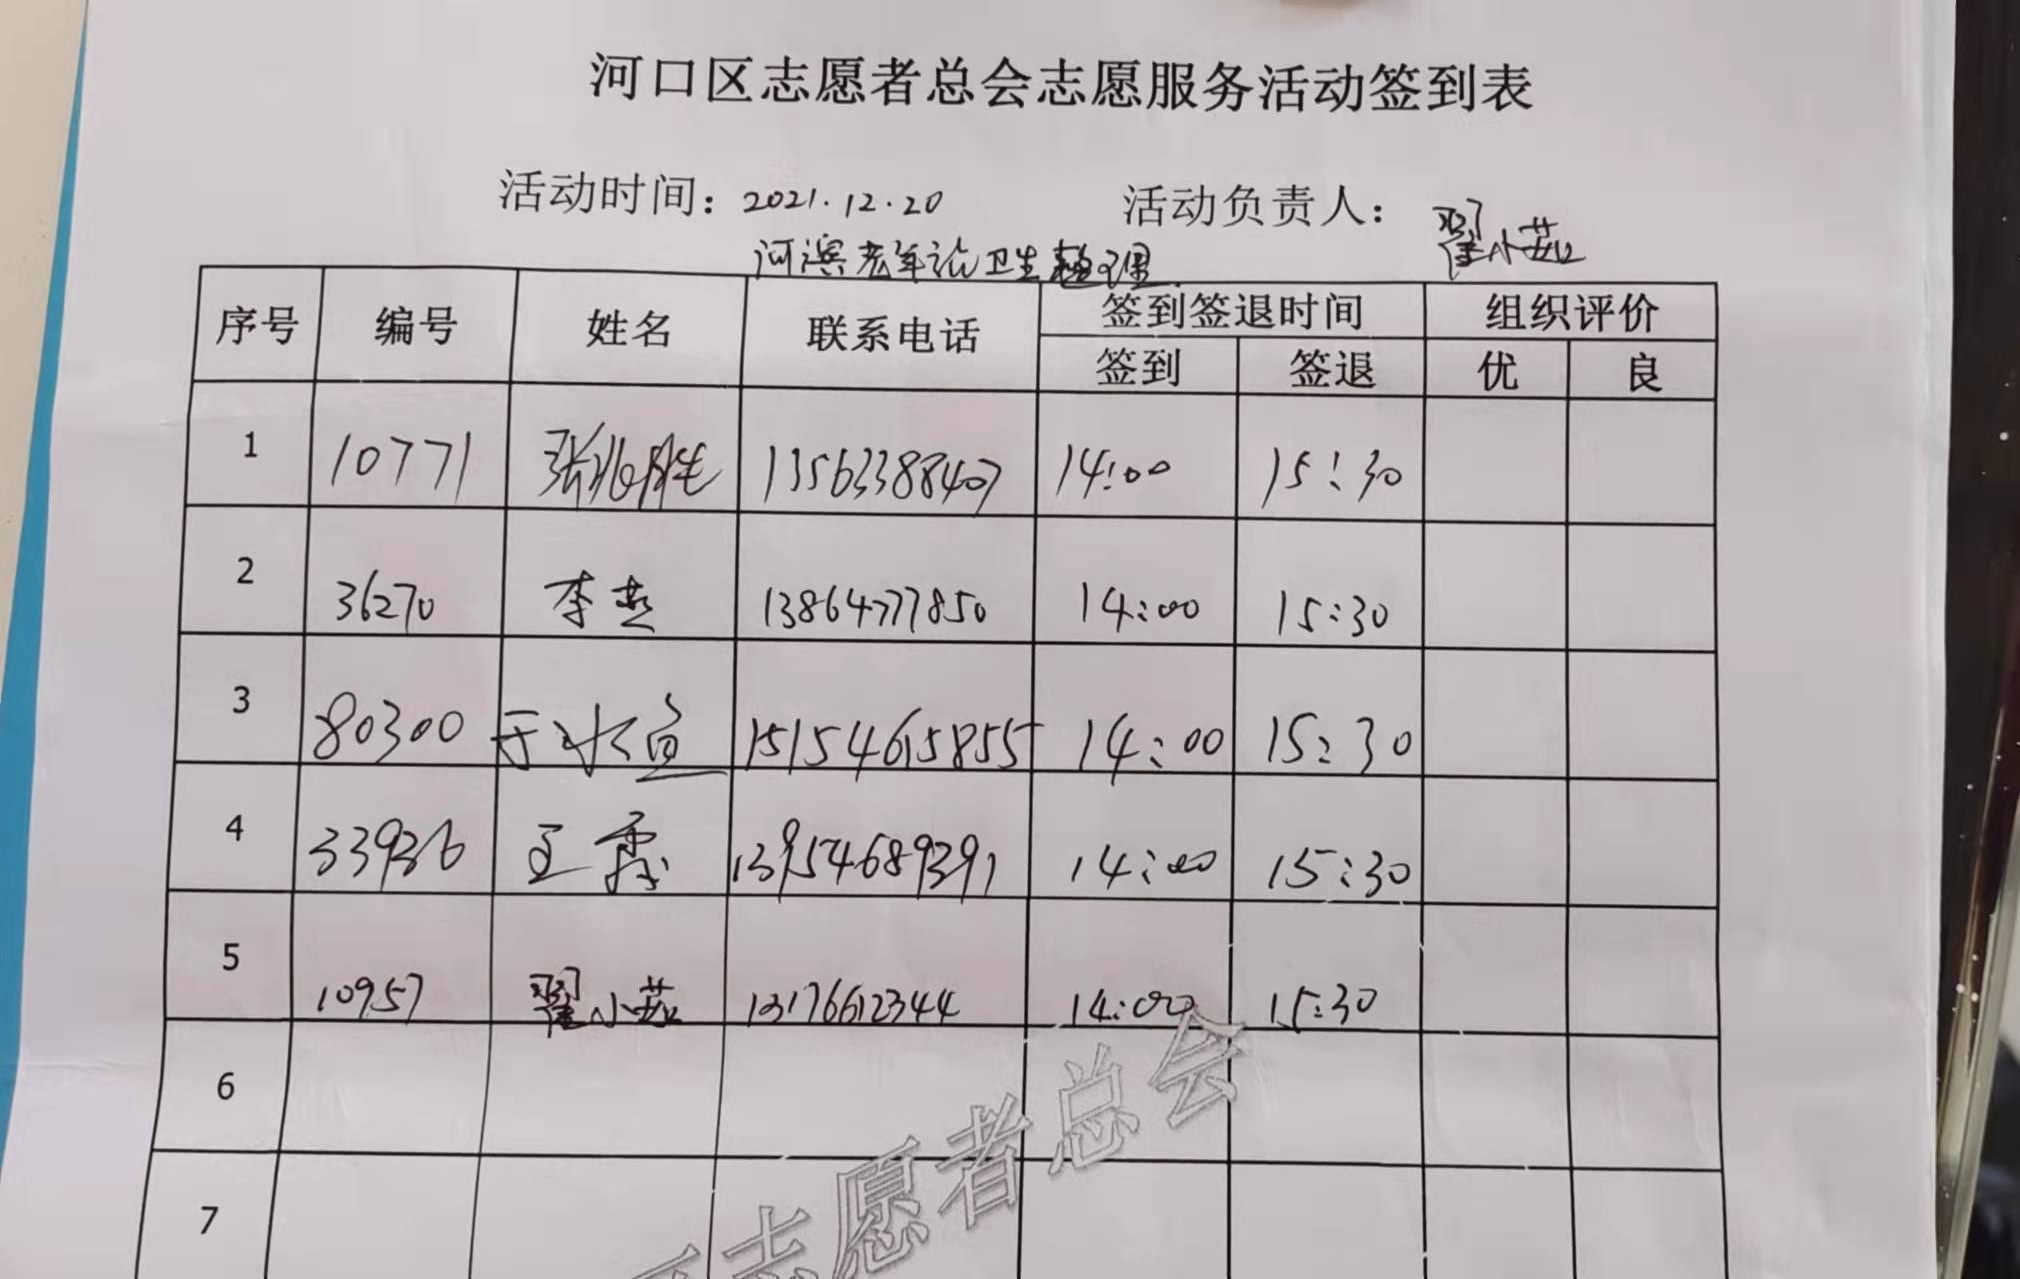 河口区志愿者总会志愿服务活动签到表
活动时间：2021.12.20 活动负责人：翟小茹
河滨老年 卫生整理
序号 编号 姓名 联系电话 签到签退时间 组织评价
签到 签退 优 良
1 10771 张兆胜 13563388407 14:00 15:30
2 36270 李燕 13864777850 14:00 15:30
3 80300 于 15154615855 14:00 15:30
4 33936 王霞 13954689391 14:00 15:30
5 10957 翟小茹 13176612344 14:00 15:30
6
7
区志愿者总会